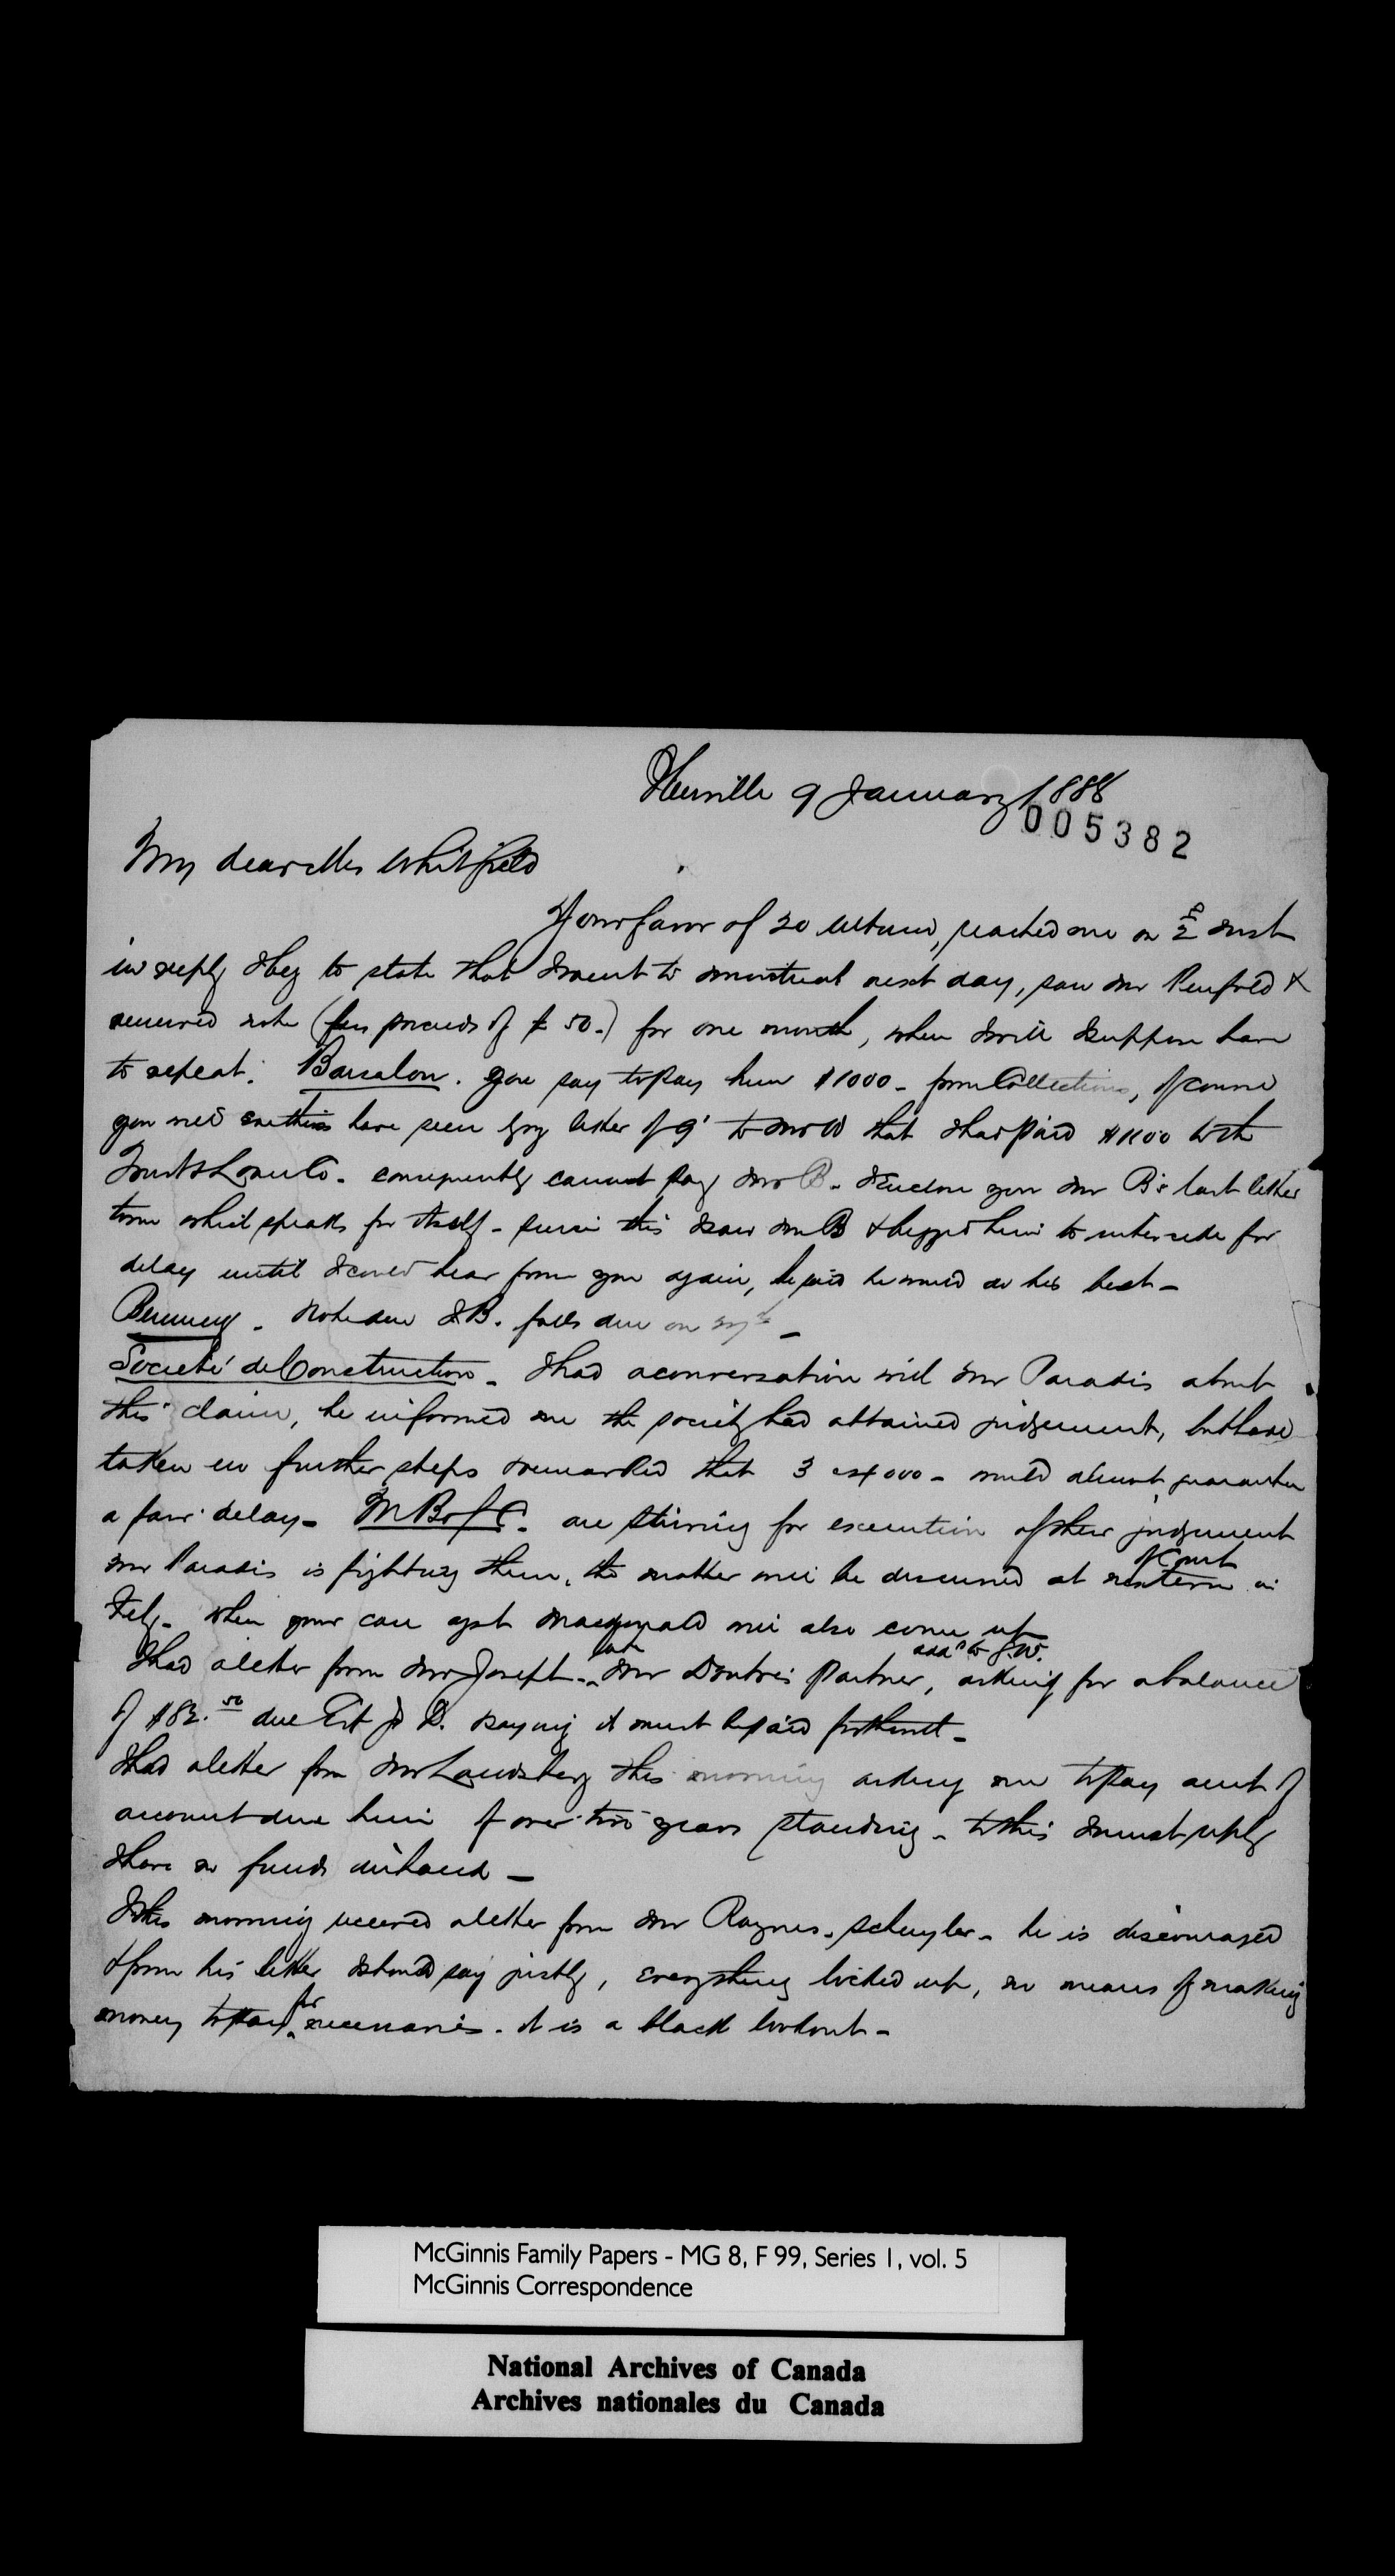 Iberville 9 January 1888
005382
My dear Mrs Whitfield
Your favor of 20 ultimo, reached me on 5 inst
in reply I beg to state that I went to Montreal next day, saw Mr Penfold &
renewed note (less proceeds of $50.) for one month, when I will I suppose have
to repeat. Barsalou. You say to pay him $1000 - from Collections, of course
you will ere this have seen by my letter of 9' to Mr W that I had paid $1100 to the
Trust & Loan Co. consequently cannot pay Mr B. I enclose you Mr B's last letter
to me which speaks for itself - since this I saw Mr B & begged him to intercede for
delay until I could hear from you again, he said he would do his best -
Note due J.B. falls due on
Societé de Construction - I had a conversation with Mr Paradis about
this claim, he informed me the society had obtained judgement, but have
taken no further steps & remarked that 3 or 4000 - would almost guarantee
a fair delay - M B of C. are striving for execution of their judgement
Mr Paradis is fighting them, the matter will be discussed at next term of Court in
Feby - when your case agst Macdonald will also come up
I had a letter from Mr Joseph - late Mr Doutre's partner, add'd to J.W. asking for a balance
of $82.50 due Est J D. saying it must be paid forthwith -
I had a letter from Mr Landsberg this morning asking me to pay amt of
account due him of over two years standing - to this I must reply
I have no funds in hand -
I this morning received a letter from Mr Raynes. Schuyler - he is discouraged
& from his letter I should say justly, everything locked up, no means of making
money to pay for necessaries. it is a black lookout -
McGinnis Family Papers - MG 8, F 99, Series 1, vol. 5
McGinnis Correspondence
National Archives of Canada
Archives nationales du Canada